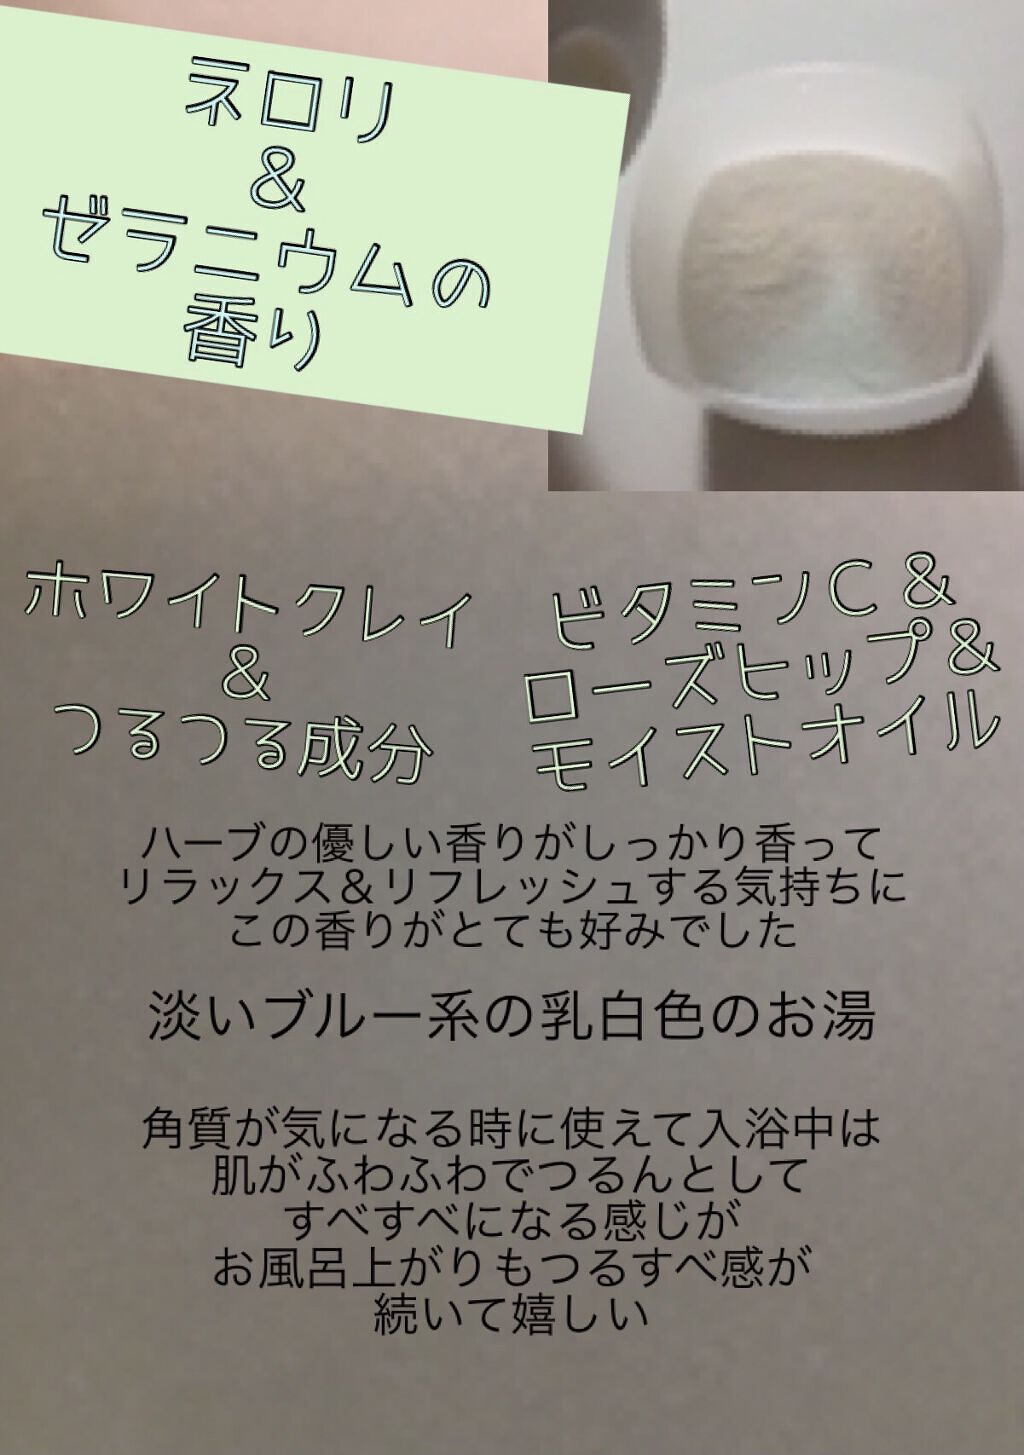 ネロリ
&
ゼラニウムの
香り
ホワイトクレイ
&
つるつる成分
ビタミンC &
ローズヒップ&
モイストオイル
ハーブの優しい香りがしっかり香って
リラックス&リフレッシュする気持ちに
この香りがとても好みでした
淡いブルー系の乳白色のお湯
角質が気になる時に使えて入浴中は
肌がふわふわでつるんとして
すべすべになる感じが
お風呂上がりもつるすべ感が
続いて嬉しい